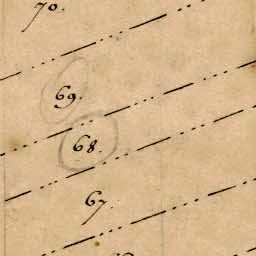 70.
69.
68.
67.